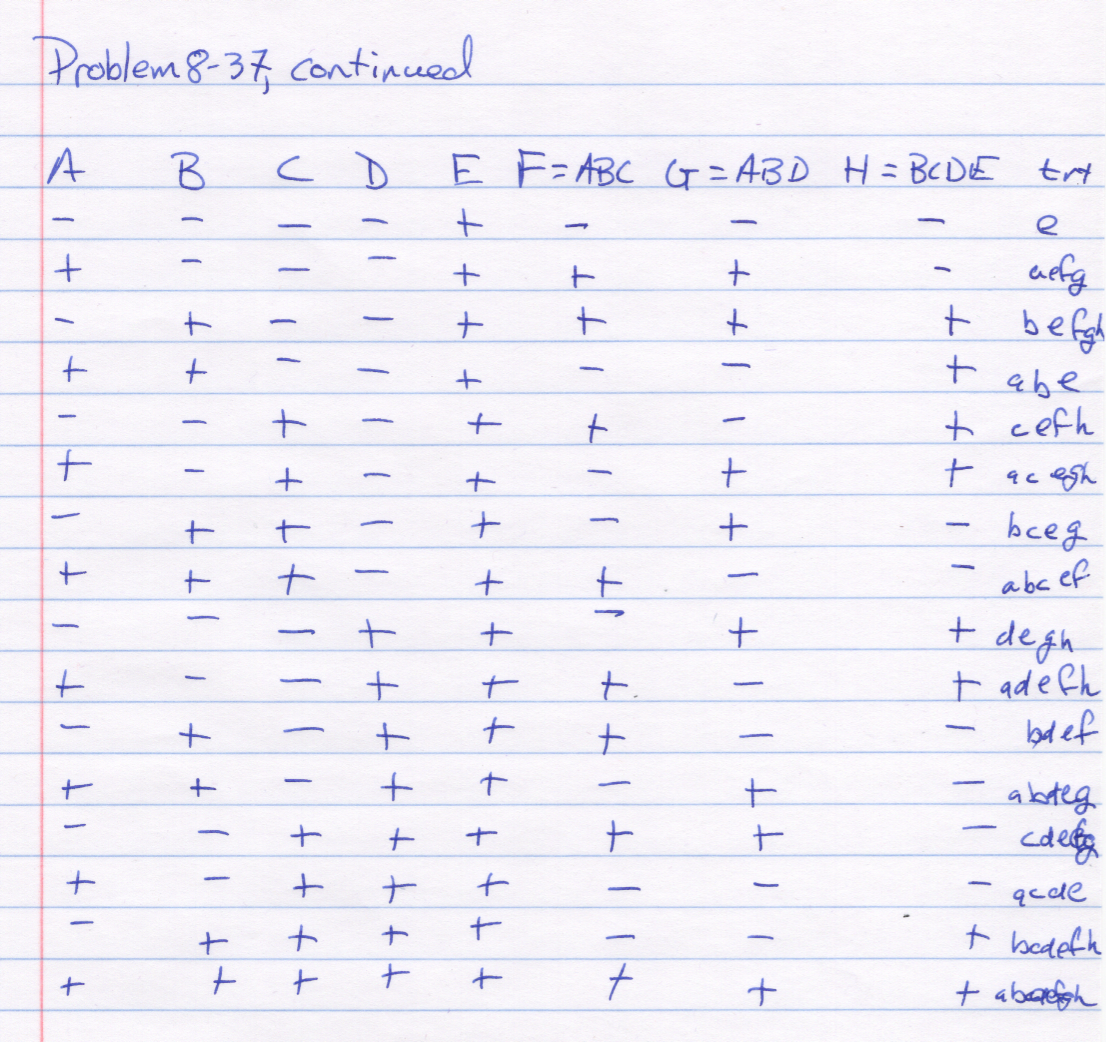 Problem 8-37, continued
A B C D E F = ABC G = ABD H = BCDE trt
− − − − + − − − e
+ − − − + + + − aefg
− + − − + + + + befgh
+ + − − + − − + abe
− − + − + + − + cefh
+ − + − + − + + acegh
− + + − + − + − bceg
+ + + − + + − − abcef
− − − + + − + + degh
+ − − + + + − + adefh
− + − + + + − − bdef
+ + − + + − + − abdeg
− − + + + + + − cdefg
+ − + + + − − − acde
− + + + + − − + bcdefh
+ + + + + + + +